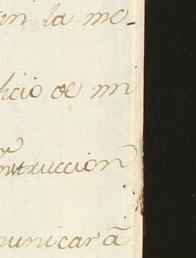 en la mo-
ficio de mi
nstruccion
unicarã